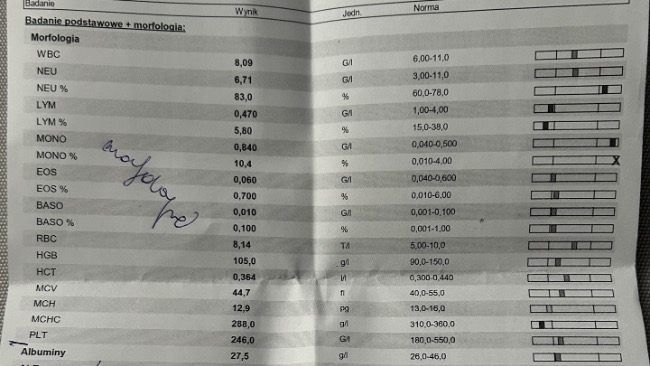 Badanie Wynik Jedn. Norma
Badanie podstawowe + morfologia:
Morfologia
WBC 8,09 G/l 6,00-11,0
NEU 6,71 G/l 3,00-11,0
NEU % 83,0 % 60,0-78,0
LYM 0,470 G/l 1,00-4,00
LYM % 5,80 % 15,0-38,0
MONO 0,840 G/l 0,040-0,500
MONO % 10,4 % 0,010-4,00 X
EOS 0,060 G/l 0,040-0,600
EOS % 0,700 % 0,010-6,00
BASO 0,010 G/l 0,001-0,100
BASO % 0,100 % 0,001-1,00
RBC 8,14 T/l 5,00-10,0
HGB 105,0 g/l 90,0-150,0
HCT 0,364 l/l 0,300-0,440
MCV 44,7 fl 40,0-55,0
MCH 12,9 pg 13,0-16,0
MCHC 288,0 g/l 310,0-360,0
PLT 246,0 G/l 180,0-550,0
Albuminy 27,5 g/l 26,0-46,0